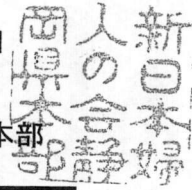 新日本婦
人の会静
岡県本部
本部